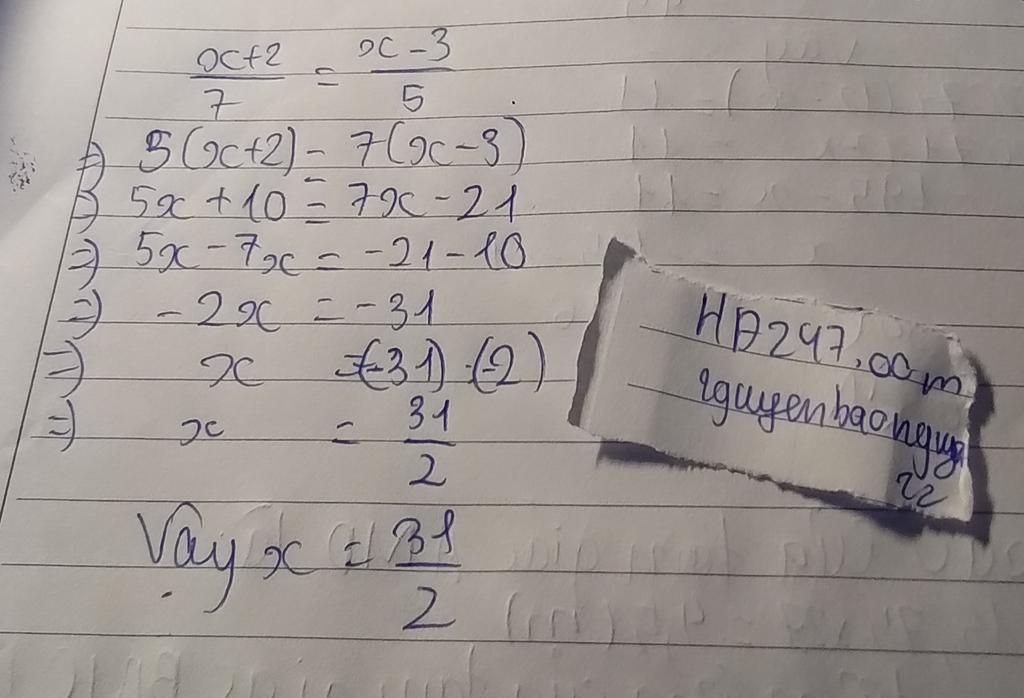 x+2/7 = x-3/5
=) 5(x+2) = 7(x-3)
=) 5x + 10 = 7x - 21
=) 5x - 7x = -21 - 10
=) -2x = -31
=) x = (-31) : (-2)
=) x = 31/2
Vậy x = 31/2
HD247.com
nguyenbaonguy
22